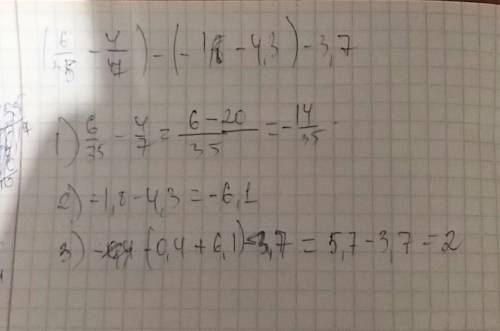 (6/35 - 4/7) - (-1,8 - 4,3) - 3,7
1) 6/35 - 4/7 = 6-20/35 = -14/35
2) = 1,8 - 4,3 = -6,1
3) (-0,4 + 6,1) - 3,7 = 5,7 - 3,7 = 2